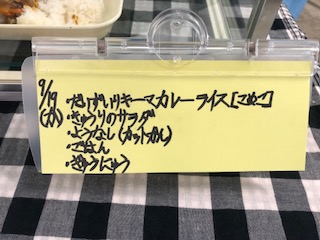 9/19 ・だいずいりキーマカレーライス[こめこ]
(か) ・きゅうりのサラダ
・ようなし(カットかん)
・ごはん
・ぎゅうにゅう